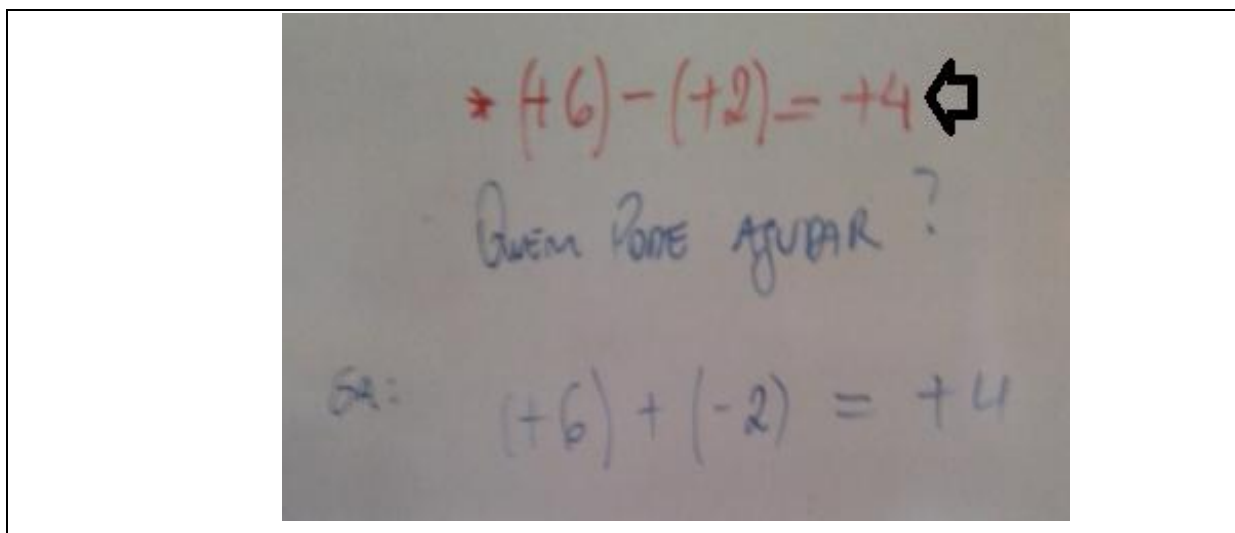 * (+6) - (+2) = +4
QUEM PODE AJUDAR ?
Ex: (+6) + (-2) = +4